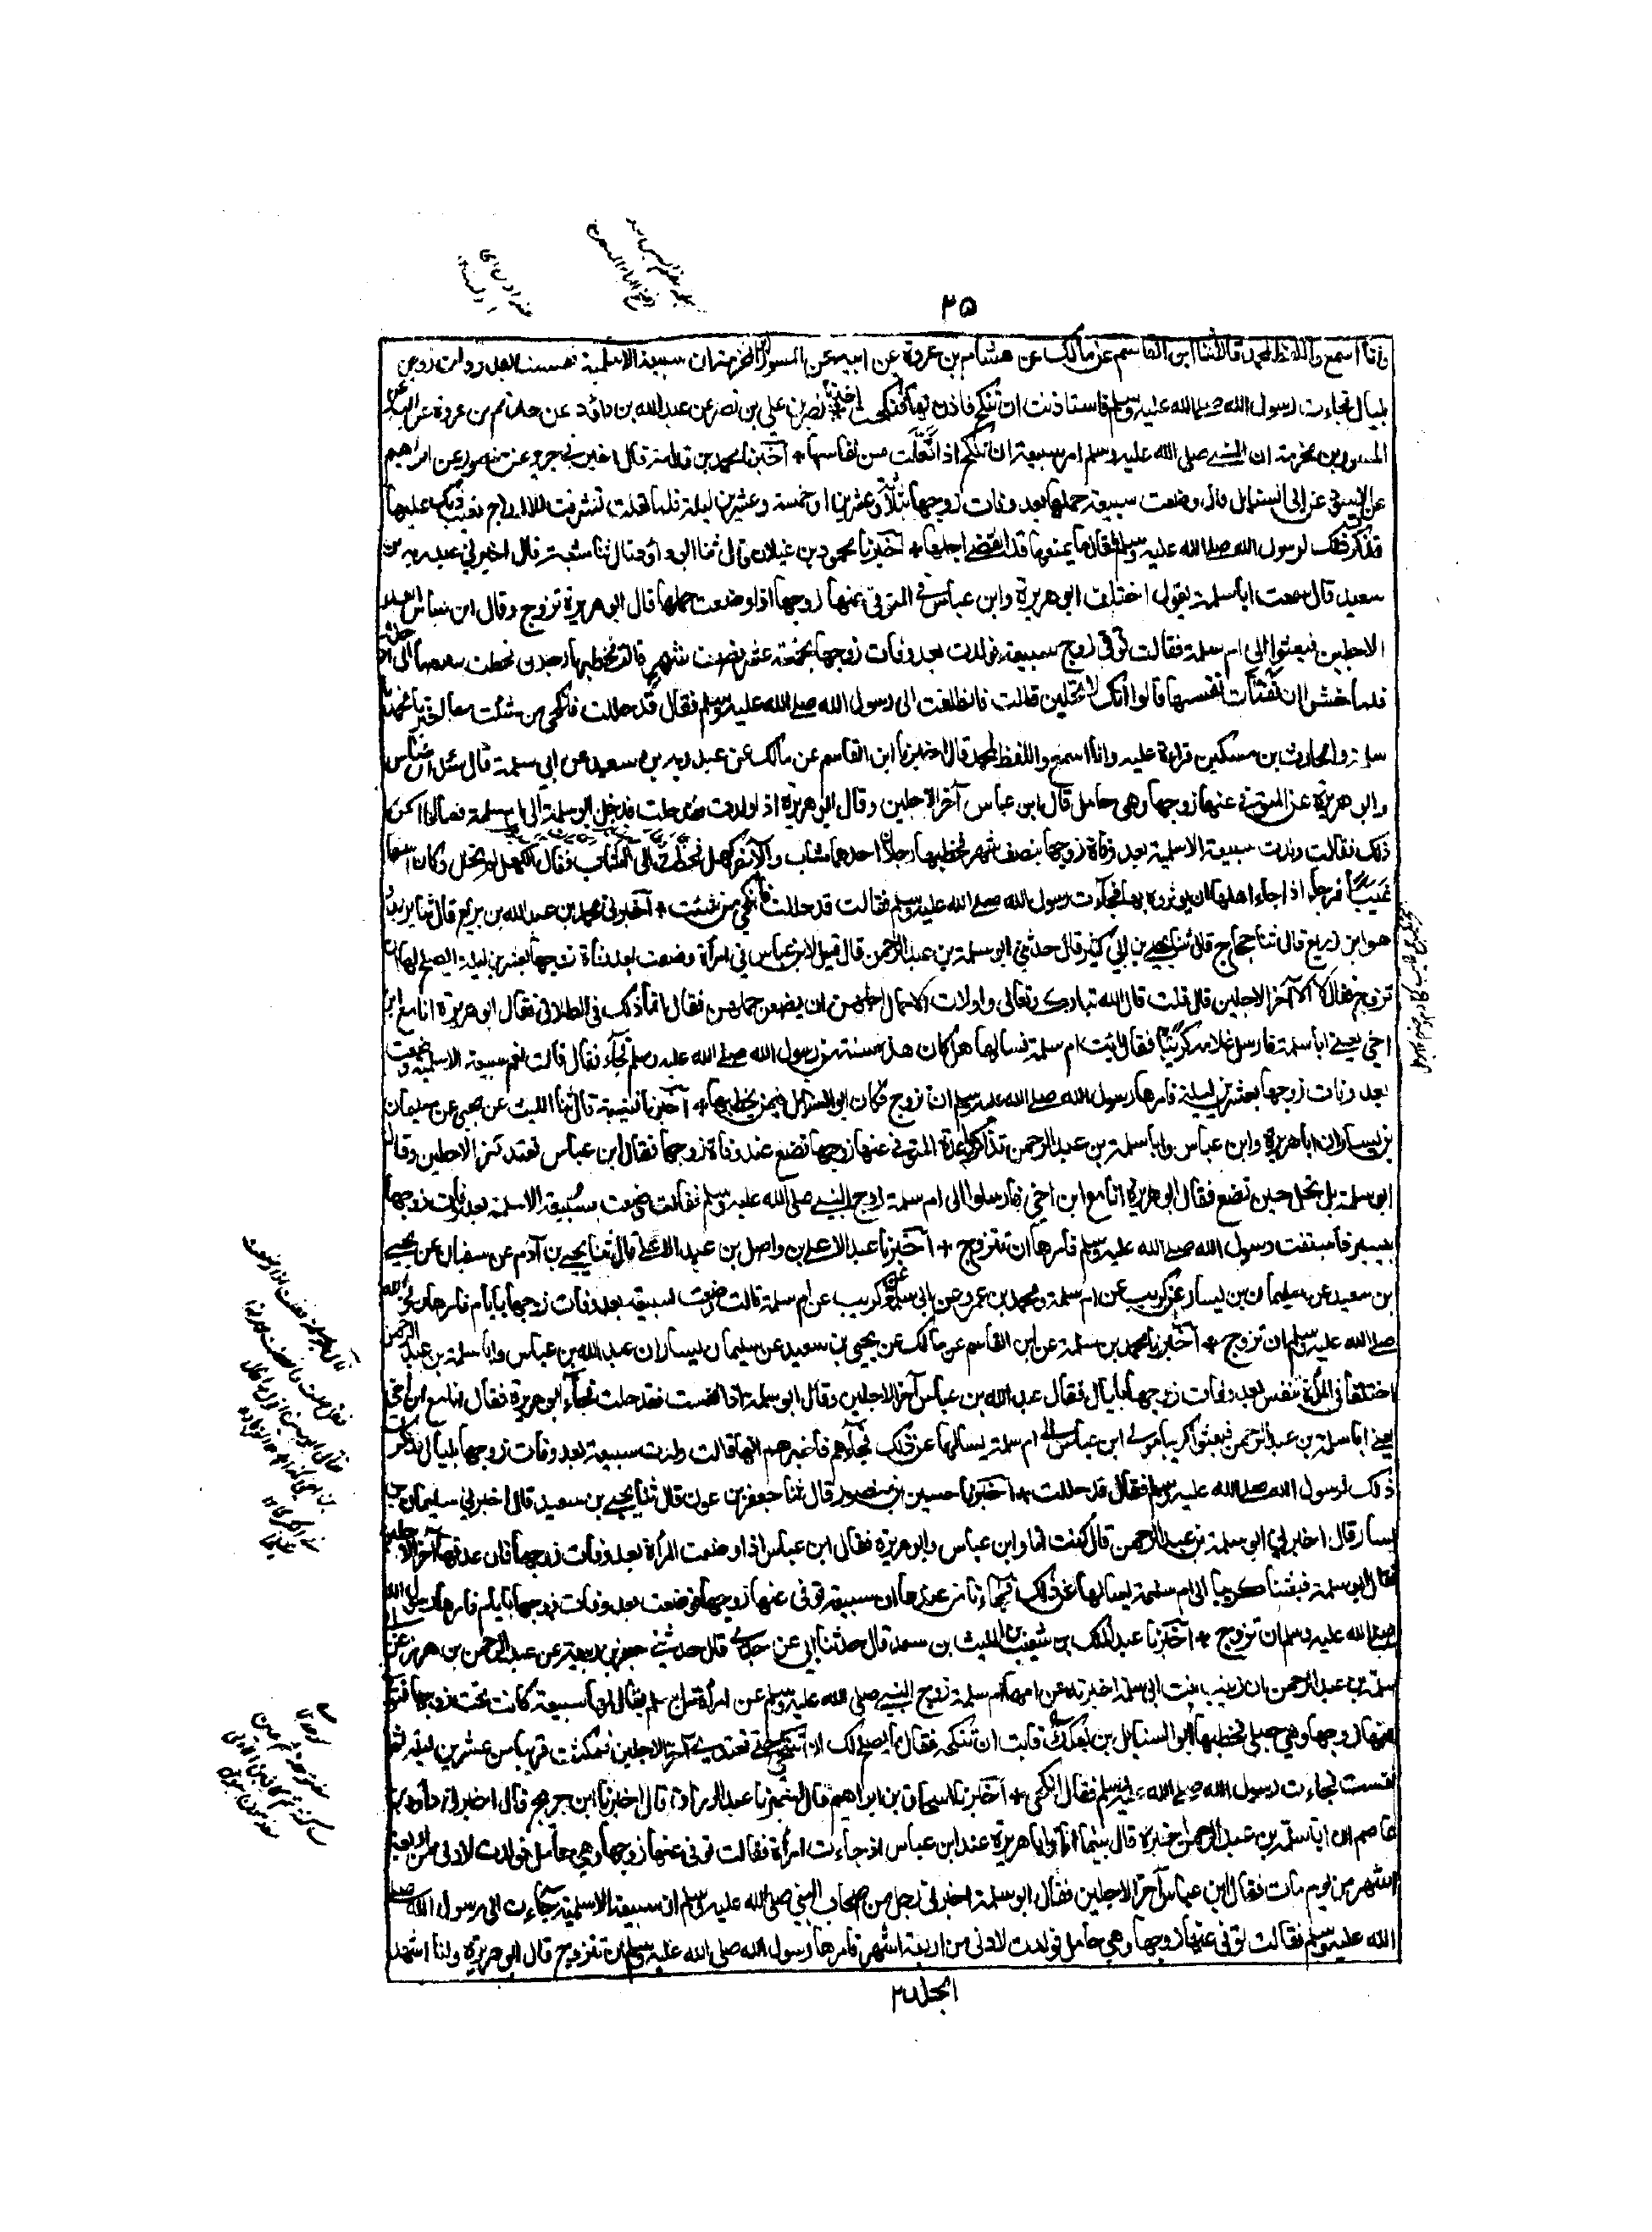 ٢٥
وانا اسمع واللفظ لمحمد قالا ثنا ابن القاسم عن مالك عن هشام بن عروة عن ابيه عن المسور بن مخرمة ان سبيعة الاسلمية نفست بعد وفات زوجها
بليال فجاءت رسول الله صلى الله عليه وسلم فاستاذنت ان تنكح فاذن لها فنكحت اخبرنا نصر بن علي بن نصر عن عبد الله بن داؤد عن هشام بن عروة عن ابيه عن
المسور بن مخرمة ان النبي صلى الله عليه وسلم امر سبيعة ان تنكح اذا تعلت من نفاسها + اخبرنا محمد بن قدامة قال اخبرني جرير عن منصور عن ابراهيم
عن الاسود عن ابي السنابل قال وضعت سبيعة حملها بعد وفات زوجها بثلاثة وعشرين او خمسة وعشرين ليلة فلما تعلت تشوفت للازواج فعيب ذلك عليها
فذكر ذلك لرسول الله صلى الله عليه وسلم فقال ما يمنعها قد انقضى اجلها + اخبرنا محمود بن غيلان قال ثنا ابو داؤد قال ثنا شعبة قال اخبرني عبد ربه بن
سعيد قال سمعت ابا سلمة يقول اختلف ابو هريرة وابن عباس في المتوفى عنها زوجها اذا وضعت حملها قال ابو هريرة تزوج وقال ابن عباس ابعد
الاجلين فبعثوا الى ام سلمة فقالت توفى زوج سبيعة فولدت بعد وفات زوجها بخمسة عشر نصف شهر قالت فخطبها رجلان فحطت بنفسها الى احدهما
فلما خشوا ان تفتات بنفسها قالوا انك لا تحلين قالت فانطلقت الى رسول الله صلى الله عليه وسلم فقال قد حللت فانكحي من شئت + اخبرنا محمد بن
سلمة والحارث بن مسكين قراءة عليه وانا اسمع واللفظ لمحمد قال اخبرنا ابن القاسم عن مالك عن عبد ربه بن سعيد عن ابي سلمة قال سئل ابن عباس
وابو هريرة عن المتوفى عنها زوجها وهي حامل قال ابن عباس آخر الاجلين وقال ابو هريرة اذا ولدت فقد حلت فدخل ابو سلمة الى ام سلمة فسالها عن
ذلك فقالت ولدت سبيعة الاسلمية بعد وفاة زوجها بنصف شهر فخطبها رجلان احدهما شاب والآخر كهل فحطت الى الشاب فقال الكهل لم تحلل وكان اهلها
غيبا فرجا اذا جاء اهلها ان يوثروه بها فجاءت رسول الله صلى الله عليه وسلم فقالت قد حللت فانكحي من شئت + اخبرني محمد بن عبد الله بن بزيع قال ثنا يزيد و
هو ابن زريع قال ثنا حجاج قال ثنا يحيى بن ابي كثير قال حدثني ابو سلمة بن عبد الرحمن قال قيل لابن عباس في امرأة وضعت بعد وفاة زوجها بعشرين ليلة ايصلح لها ان
تزوج فقال لا الا آخر الاجلين قال قلت قال الله تبارك وتعالى واولات الاحمال اجلهن ان يضعن حملهن فقال انما ذلك في الطلاق فقال ابو هريرة انا مع ابن
اخي يعني ابا سلمة فارسل غلامه كريبا فقال ائت ام سلمة فسالها هل كان هذا سنة من رسول الله صلى الله عليه وسلم فجاء فقال قالت نعم سبيعة الاسلمية وضعت
بعد وفات زوجها بعشرين ليلة فامرها رسول الله صلى الله عليه وسلم ان تزوج فكان ابو السنابل فيمن يخطبها + اخبرنا قتيبة قال ثنا الليث عن يحيى عن سليمان
بن يسار ان ابا هريرة وابن عباس وابا سلمة بن عبد الرحمن تذاكروا عدة المتوفى عنها زوجها تضع عند وفاة زوجها فقال ابن عباس تعتد آخر الاجلين وقال
ابو سلمة بل تحل حين تضع فقال ابو هريرة انا مع ابن اخي فارسلوا الى ام سلمة زوج النبي صلى الله عليه وسلم فقالت وضعت سبيعة الاسلمية بعد وفات زوجها
بيسير فاستفتت رسول الله صلى الله عليه وسلم فامرها ان تتزوج + اخبرنا عبد الاعلى بن واصل بن عبد الاعلى قال ثنا يحيى بن آدم عن سفيان عن يحيى
بن سعيد عن سليمان بن يسار عن كريب عن ام سلمة ومحمد بن عمرو عن ابي سلمة عن كريب عن ام سلمة قالت وضعت سبيعة بعد وفات زوجها بايام فامرها رسول الله
صلى الله عليه وسلم ان تزوج + اخبرنا محمد بن سلمة عن ابن القاسم عن مالك عن يحيى بن سعيد عن سليمان بن يسار ان عبد الله بن عباس وابا سلمة بن عبد الرحمن
اختلفا في المرأة تنفس بعد وفات زوجها بليال فقال عبد الله بن عباس آخر الاجلين وقال ابو سلمة اذا نفست فقد حلت فجاء ابو هريرة فقال انا مع ابن اخي
يعني ابا سلمة بن عبد الرحمن فبعثوا كريبا مولى ابن عباس الى ام سلمة يسالها عن ذلك فجاءهم فاخبرهم انها قالت ولدت سبيعة بعد وفات زوجها بليال فذكرت
ذلك لرسول الله صلى الله عليه وسلم فقال قد حللت + اخبرنا حسين بن منصور قال ثنا جعفر بن عون قال ثنا يحيى بن سعيد قال اخبرني سليمان بن
يسار قال اخبرني ابو سلمة بن عبد الرحمن قال كنت انا وابن عباس وابو هريرة فقال ابن عباس اذا وضعت المرأة بعد وفات زوجها فان عدتها آخر الاجلين
فقال ابو سلمة فبعثنا كريبا الى ام سلمة يسالها عن ذلك فجاءنا من عندها ان سبيعة توفى عنها زوجها فوضعت بعد وفات زوجها بايام فامرها رسول الله
صلى الله عليه وسلم ان تزوج + اخبرنا عبد الملك بن شعيب بن الليث بن سعد قال حدثنا ابي عن جدي قال حدثني جعفر بن ربيعة عن عبد الرحمن بن هرمز عن ابي
سلمة بن عبد الرحمن ان زينب بنت ابي سلمة اخبرته عن امها ام سلمة زوج النبي صلى الله عليه وسلم ان امرأة من اسلم يقال لها سبيعة كانت تحت زوجها فتوفى
عنها زوجها وهي حبلى فخطبها ابو السنابل بن بعكك فابت ان تنكحه فقال ما يصلح لك ان تنكحي حتى تعتدي آخر الاجلين فمكثت قريبا من عشرين ليلة ثم
نفست فجاءت رسول الله صلى الله عليه وسلم فقال انكحي + اخبرنا اسحاق بن ابراهيم قال اخبرنا عبد الرزاق قال اخبرنا ابن جريج قال اخبرني داؤد بن
عاصم ان ابا سلمة بن عبد الرحمن اخبره قال بينما انا وابو هريرة عند ابن عباس اذ جاءت امرأة فقالت توفى عنها زوجها وهي حامل فولدت لادنى من اربعة
اشهر من يوم مات فقال ابن عباس آخر الاجلين فقال ابو سلمة اخبرني رجل من اصحاب النبي صلى الله عليه وسلم ان سبيعة الاسلمية جاءت الى رسول الله صلى
الله عليه وسلم فقالت توفى عنها زوجها وهي حامل فولدت لادنى من اربعة اشهر فامرها رسول الله صلى الله عليه وسلم ان تتزوج قال ابو هريرة وانا اشهد
الجلد ٢